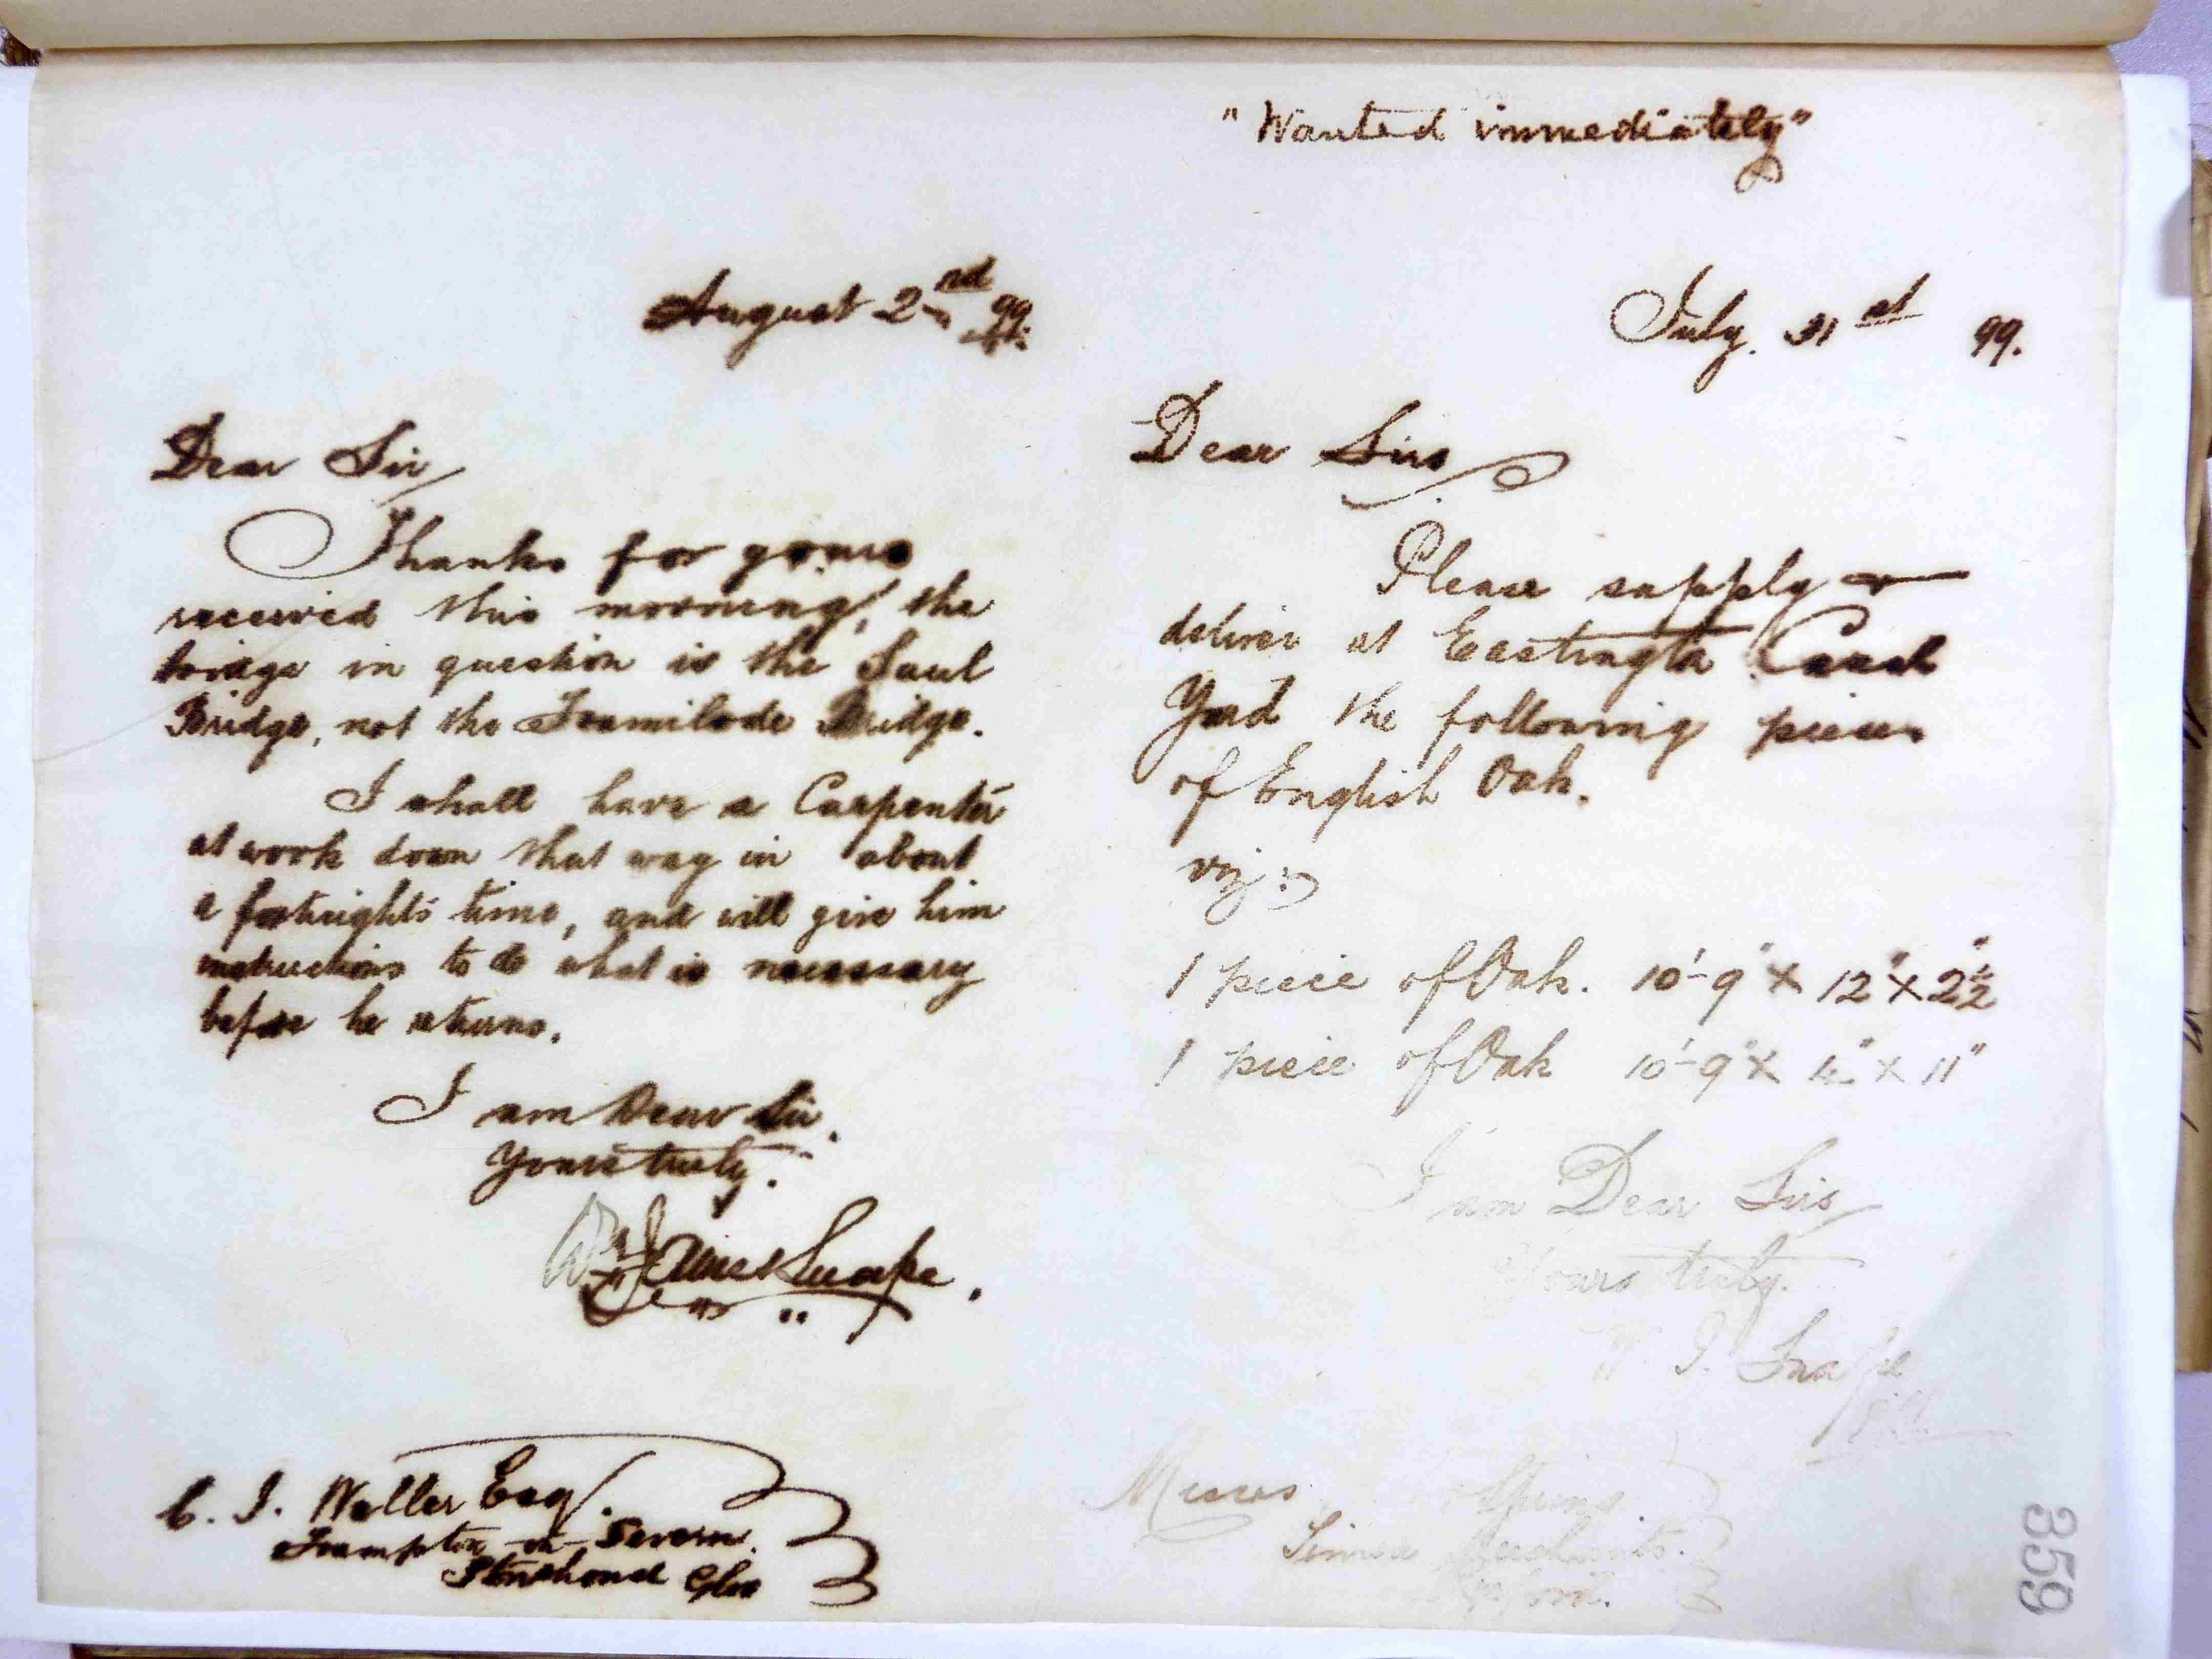 August 2nd 99.
Dear Sir
Thanks for yours
received this morning, the
bridge in question is the Saul
Bridge, not the Framilode Bridge.
I shall have a Carpenter
at work down that way in about
a fortnights time, and will give him
instructions to do what is necessary
before he returns.
I am Dear Sir.
Yours truly.
Snape.
C. J. Waller Esq.
Frampton-on-Severn.
Stonehouse Glos
"Wanted immediately"
July. 31st 99.
Dear Sirs
Please supply &
deliver at Eastington Canal
Yard the following pieces
of English Oak.
viz:-
1 piece of Oak. 10'-9" X 12" X 2½"
1 piece of Oak 10'-9" X 4" X 11"
I am Dear Sirs
Yours truly.
W. J. Snape
Messrs
3559